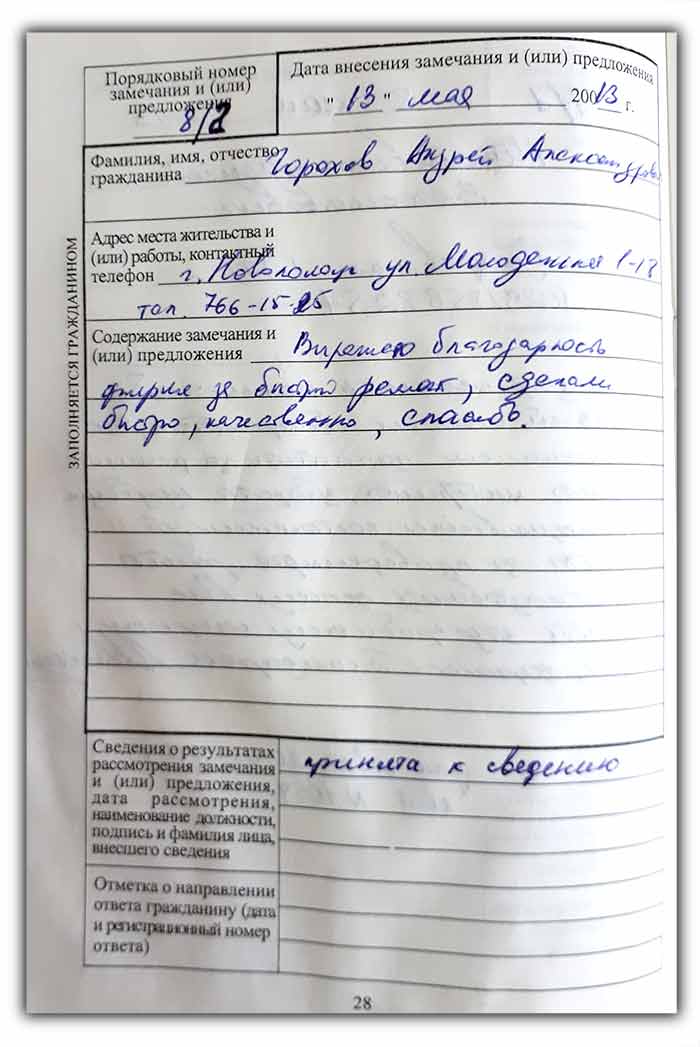 Порядковый номер
замечания и (или)
предложения
8/2
Дата внесения замечания и (или) предложения
" 13 " мая 20013 г.
Фамилия, имя, отчество
гражданина Горохов Андрей
Адрес места жительства и
(или) работы, контактный
телефон г. Новополоцк ул. Молодежная 1-18
тел. 766-15-25
Содержание замечания и
(или) предложения Выражаю благодарность
фирме за быстро ремонт, сделали
быстро, качественно, спасибо.
ЗАПОЛНЯЕТСЯ ГРАЖДАНИНОМ
Сведения о результатах
рассмотрения замечания
и (или) предложения,
дата рассмотрения,
наименование должности,
подпись и фамилия лица,
внесшего сведения
принята к сведению
Отметка о направлении
ответа гражданину (дата
и регистрационный номер
ответа)
28